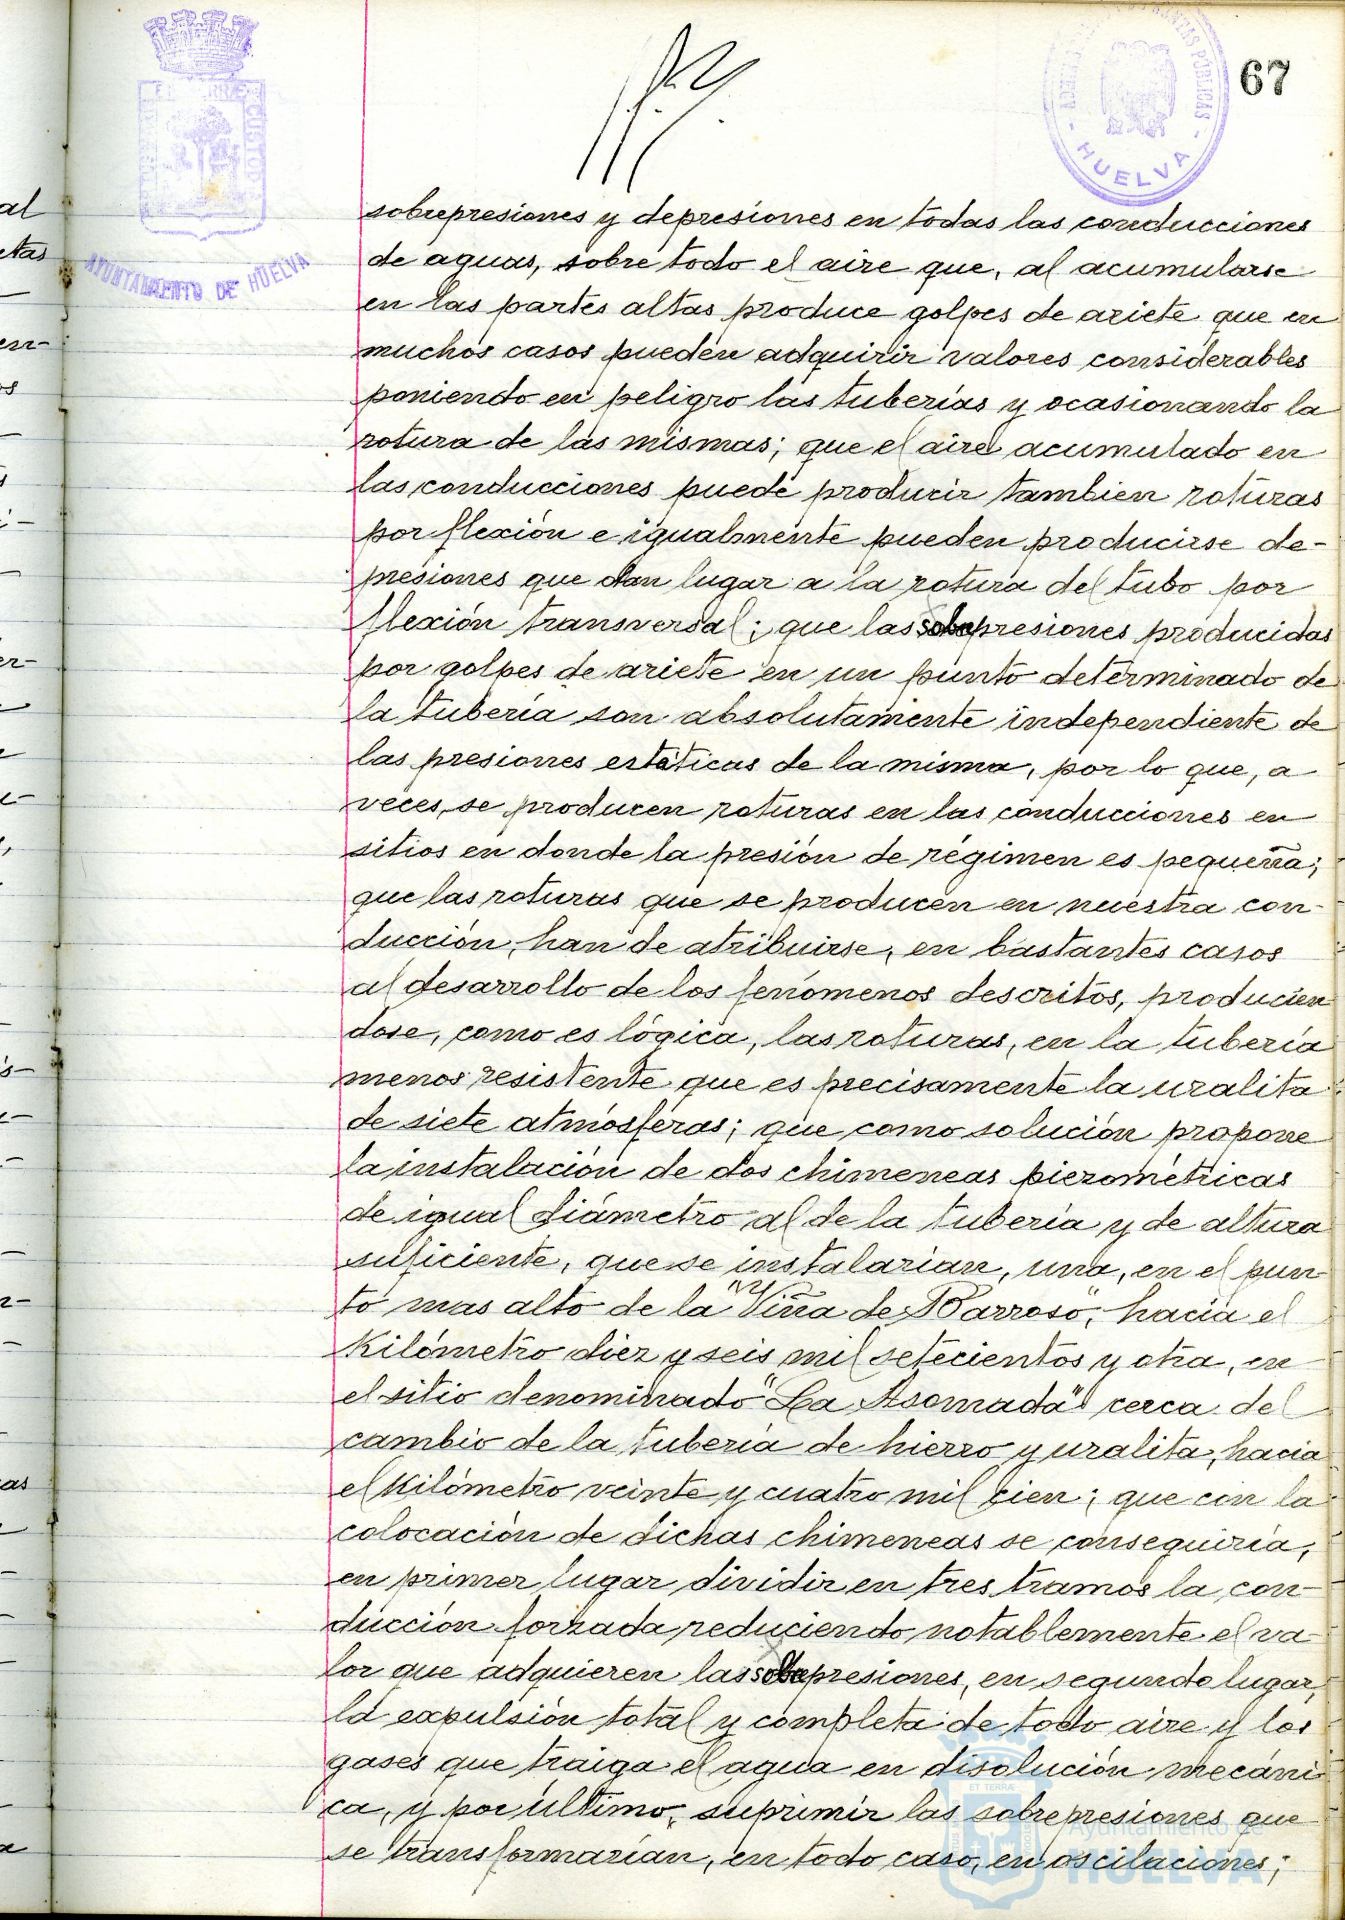 67
ADMINISTRACION DE RENTAS PÚBLICAS
- HUELVA -
AYUNTAMIENTO DE HUELVA
sobrepresiones y depresiones en todas las conducciones
de aguas, sobre todo el aire que, al acumularse
en las partes altas produce golpes de ariete que en
muchos casos pueden adquirir valores considerables
poniendo en peligro las tuberías y ocasionando la
rotura de las mismas; que el aire acumulado en
las conducciones puede producir tambien roturas
por flexión e igualmente pueden producirse de-
presiones que dan lugar a la rotura del tubo por
flexión transversal; que las sobrepresiones producidas
por golpes de ariete en un punto determinado de
la tubería son absolutamente independiente de
las presiones estáticas de la misma, por lo que, a
veces, se producen roturas en las conducciones en
sitios en donde la presión de régimen es pequeña;
que las roturas que se producen en nuestra con-
ducción, han de atribuirse, en bastantes casos
al desarrollo de los fenómenos descritos, producien
dose, como es lógica, las roturas, en la tubería
menos resistente que es precisamente la uralita
de siete atmósferas; que como solución propone
la instalación de dos chimeneas piezométricas
de igual diámetro al de la tubería y de altura
suficiente, que se instalarían, una, en el pun
to mas alto de la "Viña de Barroso", hacia el
Kilómetro diez y seis mil setecientos y otra, en
el sitio denominado "La Asomada" cerca del
cambio de la tubería de hierro y uralita, hacia
el Kilómetro veinte y cuatro mil cien; que con la
colocación de dichas chimeneas se conseguiría,
en primer lugar dividir en tres tramos la con-
ducción forzada reduciendo notablemente el va-
lor que adquieren las sobrepresiones, en segundo lugar,
la expulsión total y completa de todo aire y los
gases que traiga el agua en disolución mecáni-
ca, y por último, suprimir las sobrepresiones que
se transformarían, en todo caso, en oscilaciones;
Ayuntamiento de
HUELVA